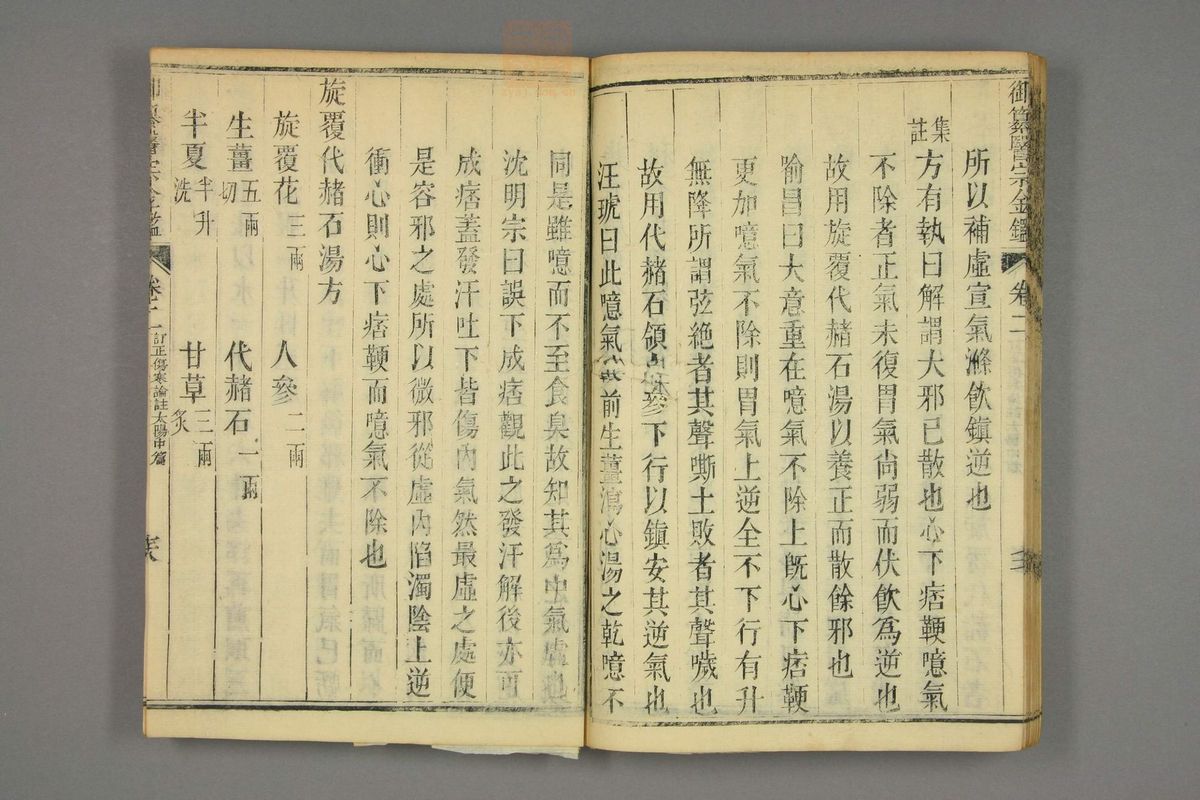 御纂醫宗金鑑 卷二
所以補虛宣氣滌飲鎮逆也
集註 方有執曰解謂大邪已散也心下痞鞕噫氣
不除者正氣未復胃氣尚弱而伏飲為逆也
故用旋覆代赭石湯以養正而散餘邪也
喻昌曰大意重在噫氣不除上既心下痞鞕
更加噫氣不除則胃氣上逆全不下行有升
無降所謂弦絕者其聲嘶土敗者其聲噦也
故用代赭石領人參下行以鎮安其逆氣也
汪琥曰此噫氣比前生薑瀉心湯之乾噫不
同是雖噫而不至食臭故知其為中氣虛也
沈明宗曰誤下成痞觀此之發汗解後亦可
成痞蓋發汗吐下皆傷內氣然最虛之處便
是容邪之處所以微邪從虛內陷濁陰上逆
衝心則心下痞鞕而噫氣不除也
旋覆代赭石湯方
旋覆花三兩 人參二兩
生薑五兩切 代赭石一兩
半夏半升洗 甘草三兩炙
御纂醫宗金鑑 卷二 訂正傷寒論註太陽中篇